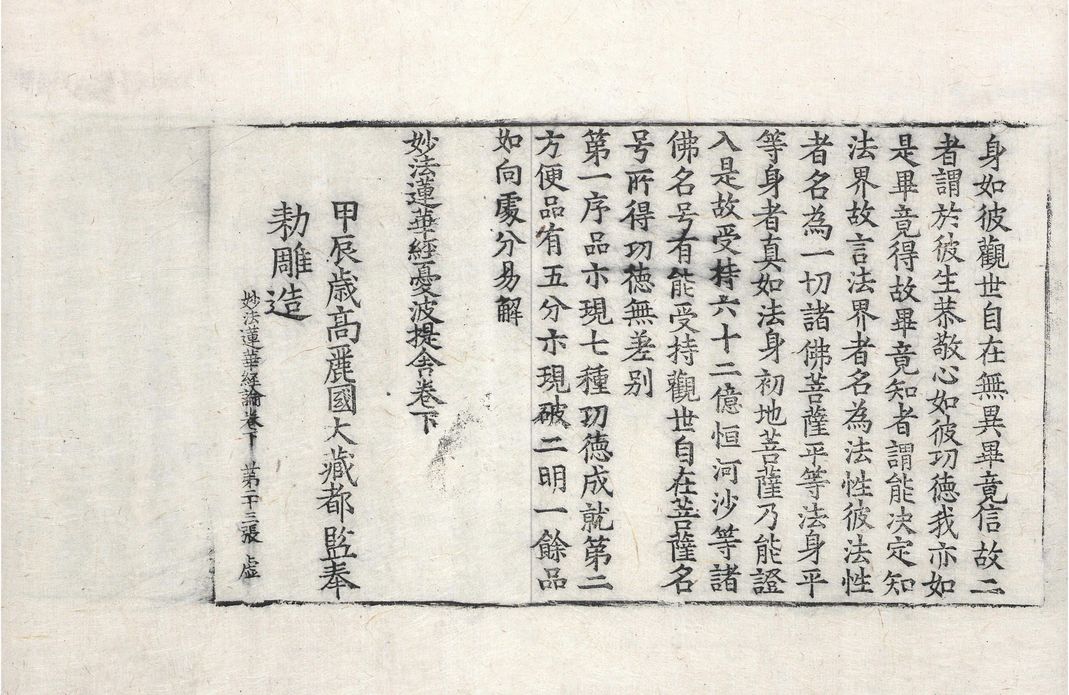 身如彼觀世自在無異畢竟信故二
者謂於彼生恭敬心如彼功徳我亦如
是畢竟得故畢竟知者謂能決定知
法界故言法界者名為法性彼法性
者名為一切諸佛菩薩平等法身平
等身者真如法身初地菩薩乃能證
入是故受持六十二億恒河沙等諸
佛名号有能受持觀世自在菩薩名
号所得功徳無差别
第一序品亦現七種功徳成就第二
方便品有五分亦現破二明一餘品
如向處分易解
妙法蓮華經憂波提舍卷下
甲辰歳高麗國大藏都監奉
勑雕造
妙法蓮華經論卷下 第二十三張 虛